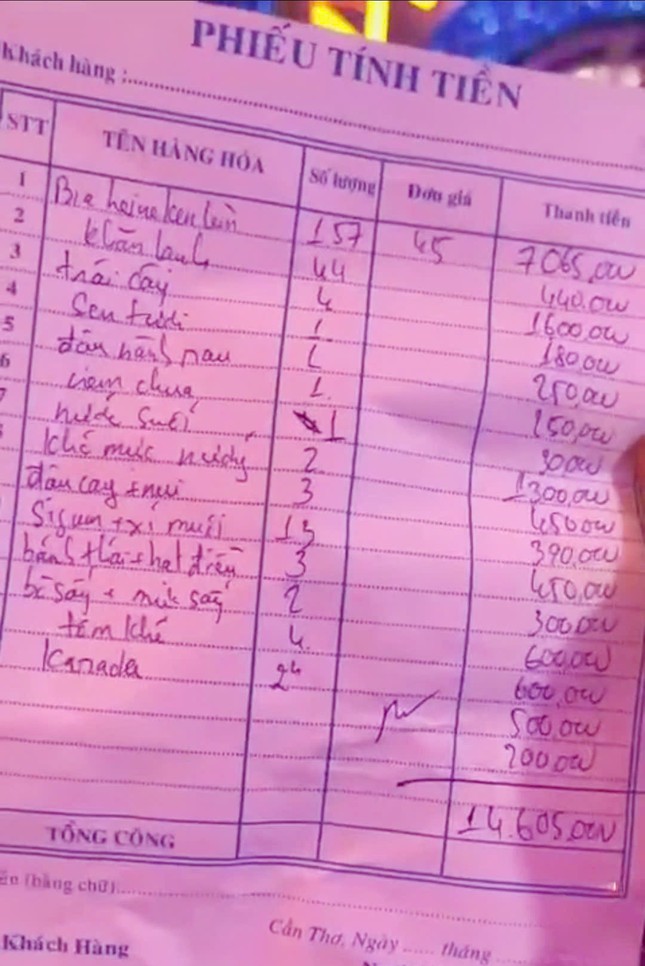 PHIẾU TÍNH TIỀN
Khách hàng :
STT TÊN HÀNG HÓA Số lượng Đơn giá Thành tiền
1 Bia heineken lùn 157 45 7065,000
2 khăn lạnh 44 440.000
3 trái cây 4 1600.000
4 Sen tươi 1 180.000
5 đậu hành nau 1 250,000
6 chua 1. 250,000
7 nước suối 1 30.000
Khô mực 2 1300,000
đậu cay + nui 3 450.000
Sigum + xí muội 13 390,000
bánh + hạt điều 3 450,000
bò sáy + mít sáy 2 300.000
tôm khô 4. 600,000
Kanada 24 600,000
500,000
200,000
14.605.000
TỔNG CỘNG
(bằng chữ)
Cần Thơ, Ngày ...... tháng
Khách Hàng